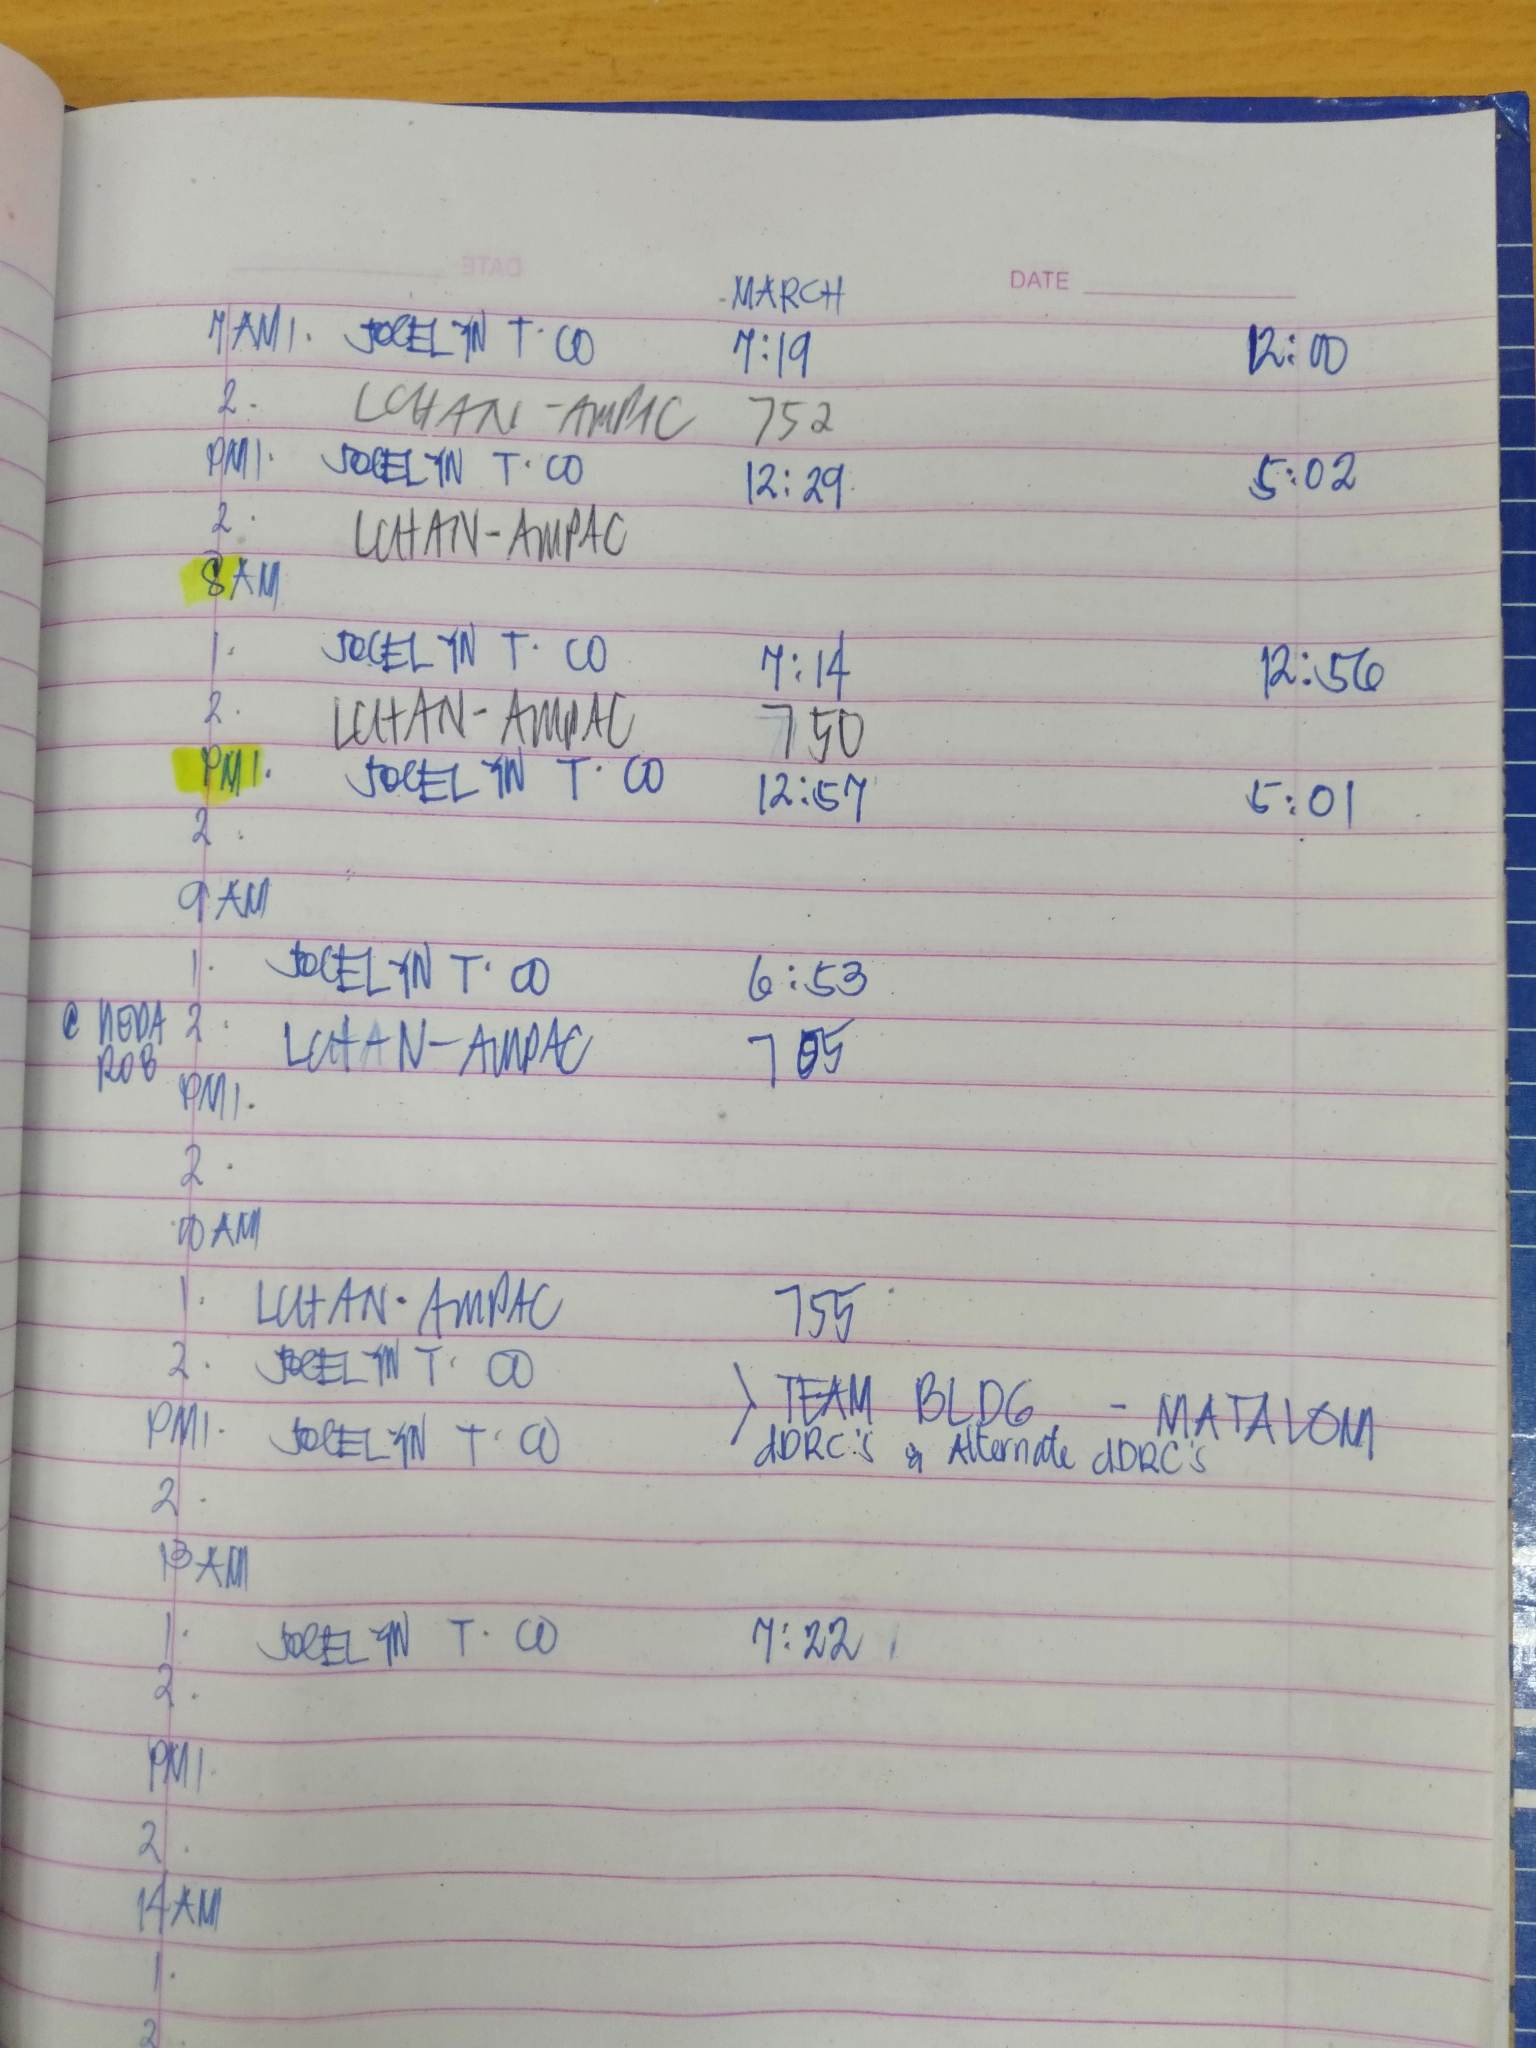 DATE
MARCH
7 AM 1. JOCELYN T. CO 7:19 12:00
2. LCHAN-AMPAC 752
PM 1. JOCELYN T. CO 12:29 5:02
2. LCHAN-AMPAC
8 AM
1. JOCELYN T. CO 7:14 12:56
2. LCHAN-AMPAC 750
PM 1. JOCELYN T. CO 12:57 5:01
2.
9 AM
1. JOCELYN T. CO 6:53
@ NEDA 2. LCHAN-AMPAC 705
ROB
PM 1.
2.
10 AM
1. LCHAN-AMPAC 755
2. JOCELYN T. CO
> TEAM BLDG - MATALOM
PM 1. JOCELYN T. CO dDRC's & Alternate dDRC's
2.
13 AM
1. JOCELYN T. CO 7:22
2.
PM 1.
2.
14 AM
1.
2